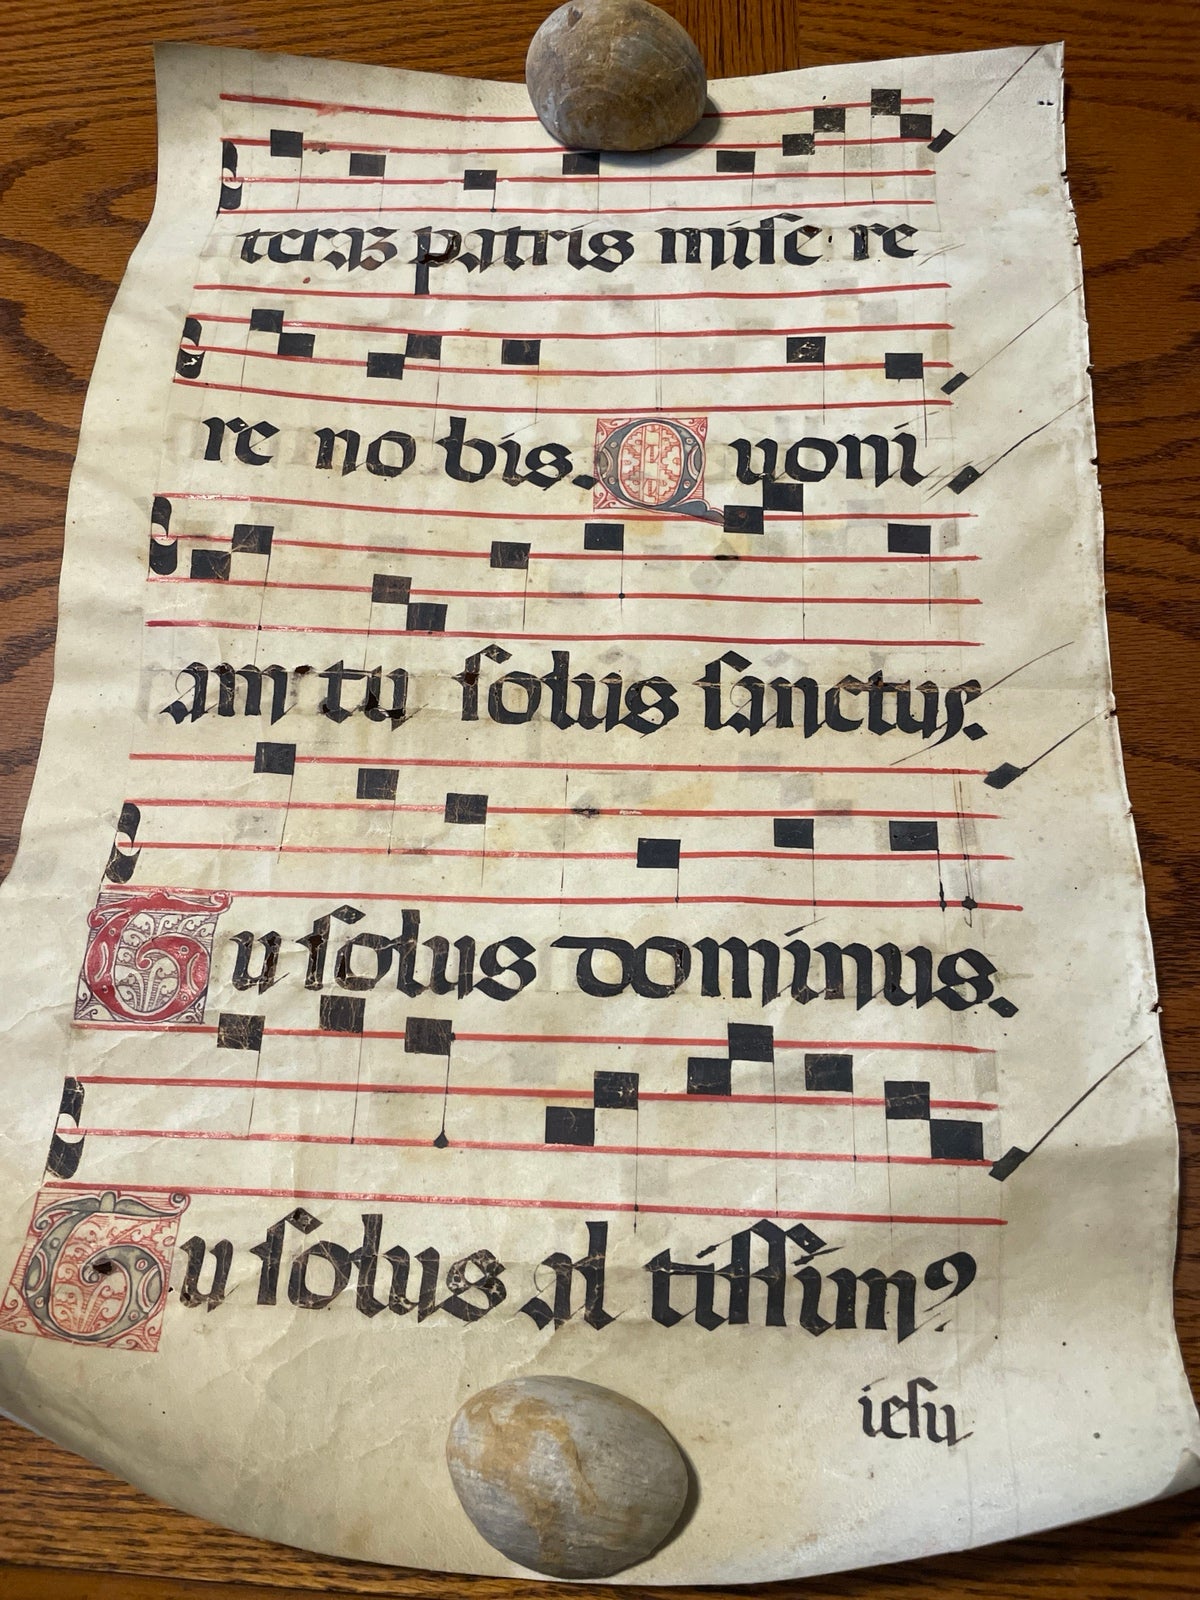 teraȝ patris mise re
re no bis. Quoni
am tu solus sanctus.
Tu solus dominus.
Tu solus al tissimꝰ
iesu